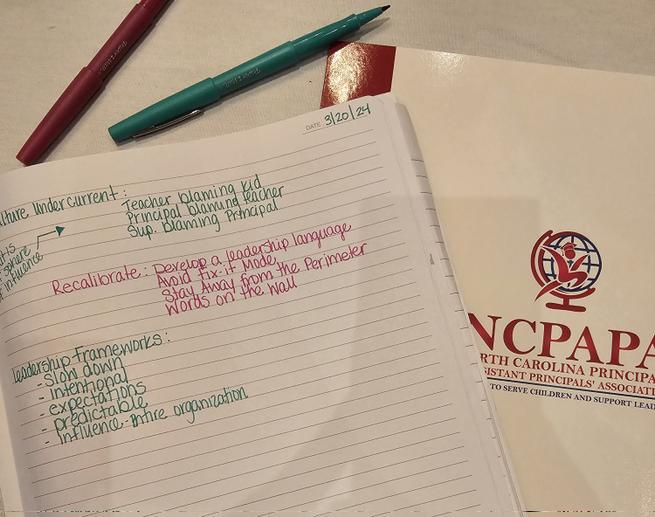 DATE 3/20/24
ulture Undercurrent: Teacher blaming kid
Principal blaming teacher
Sup. Blaming Principal
is
sphere
influence
Recalibrate: Develop a leadership language
Avoid Fix-it Mode
Stay Away from the Perimeter
Words on the Wall
leadership frameworks:
- Slow down
- intentional
- expectations
- predictable
- influence-Entire organization
NCPAPA
RTH CAROLINA PRINCIPA
SISTANT PRINCIPALS' ASSOCIATI
TO SERVE CHILDREN AND SUPPORT LEAD